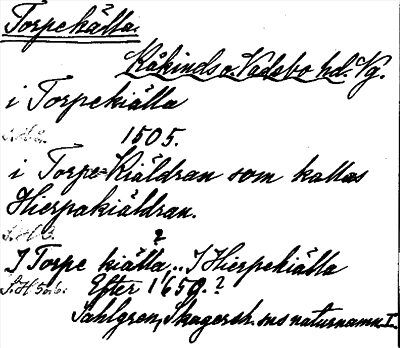 Torpekälla.
Kåkinds o. Vadsbo hd. Vg.
i Torpekiälla
S.H.b. 1505.
i Torpe-Kiäldran som kallas
Hierpakiäldran.
S.H.b. ?
I Torpe kiälla,.. I Hierpekiälla
S.H 5a.b. Efter 1650.?
Sahlgren, Skagersh. sns naturnamn I.